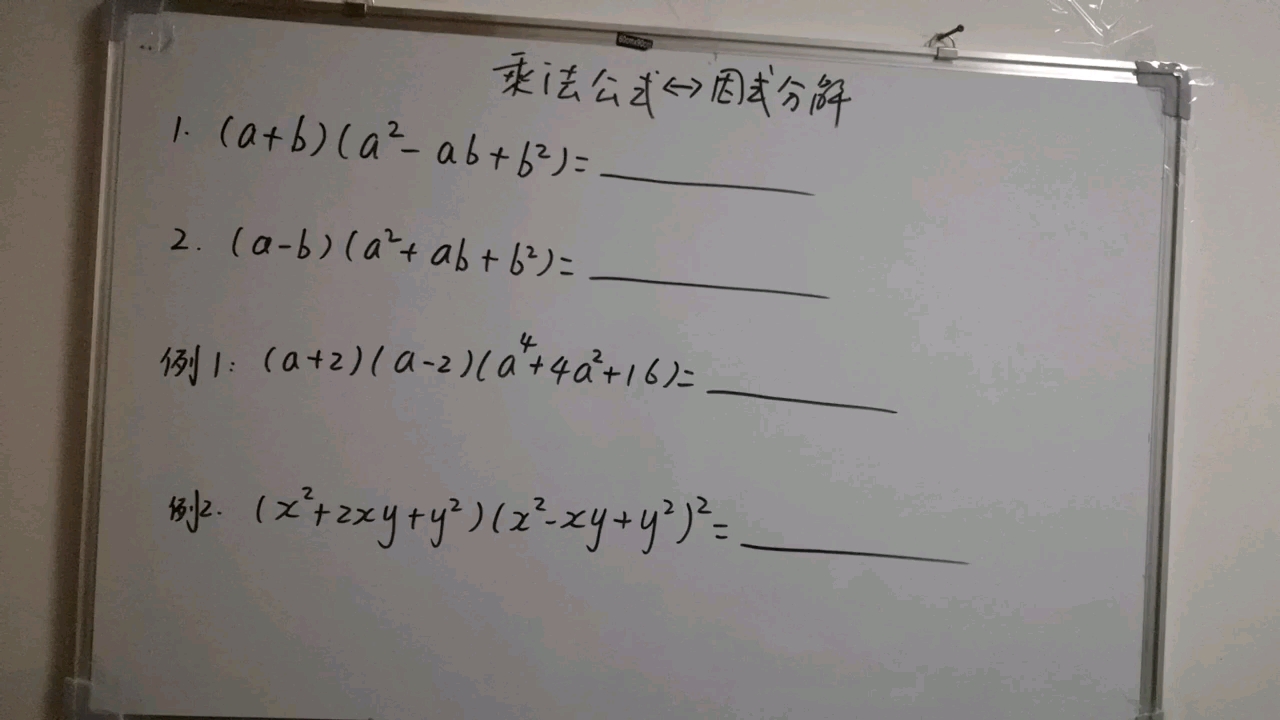 乘法公式↔因式分解
1. (a+b)(a²-ab+b²)=
2. (a-b)(a²+ab+b²)=
例1: (a+2)(a-2)(a⁴+4a²+16)=
例2. (x²+2xy+y²)(x²-xy+y²)²=